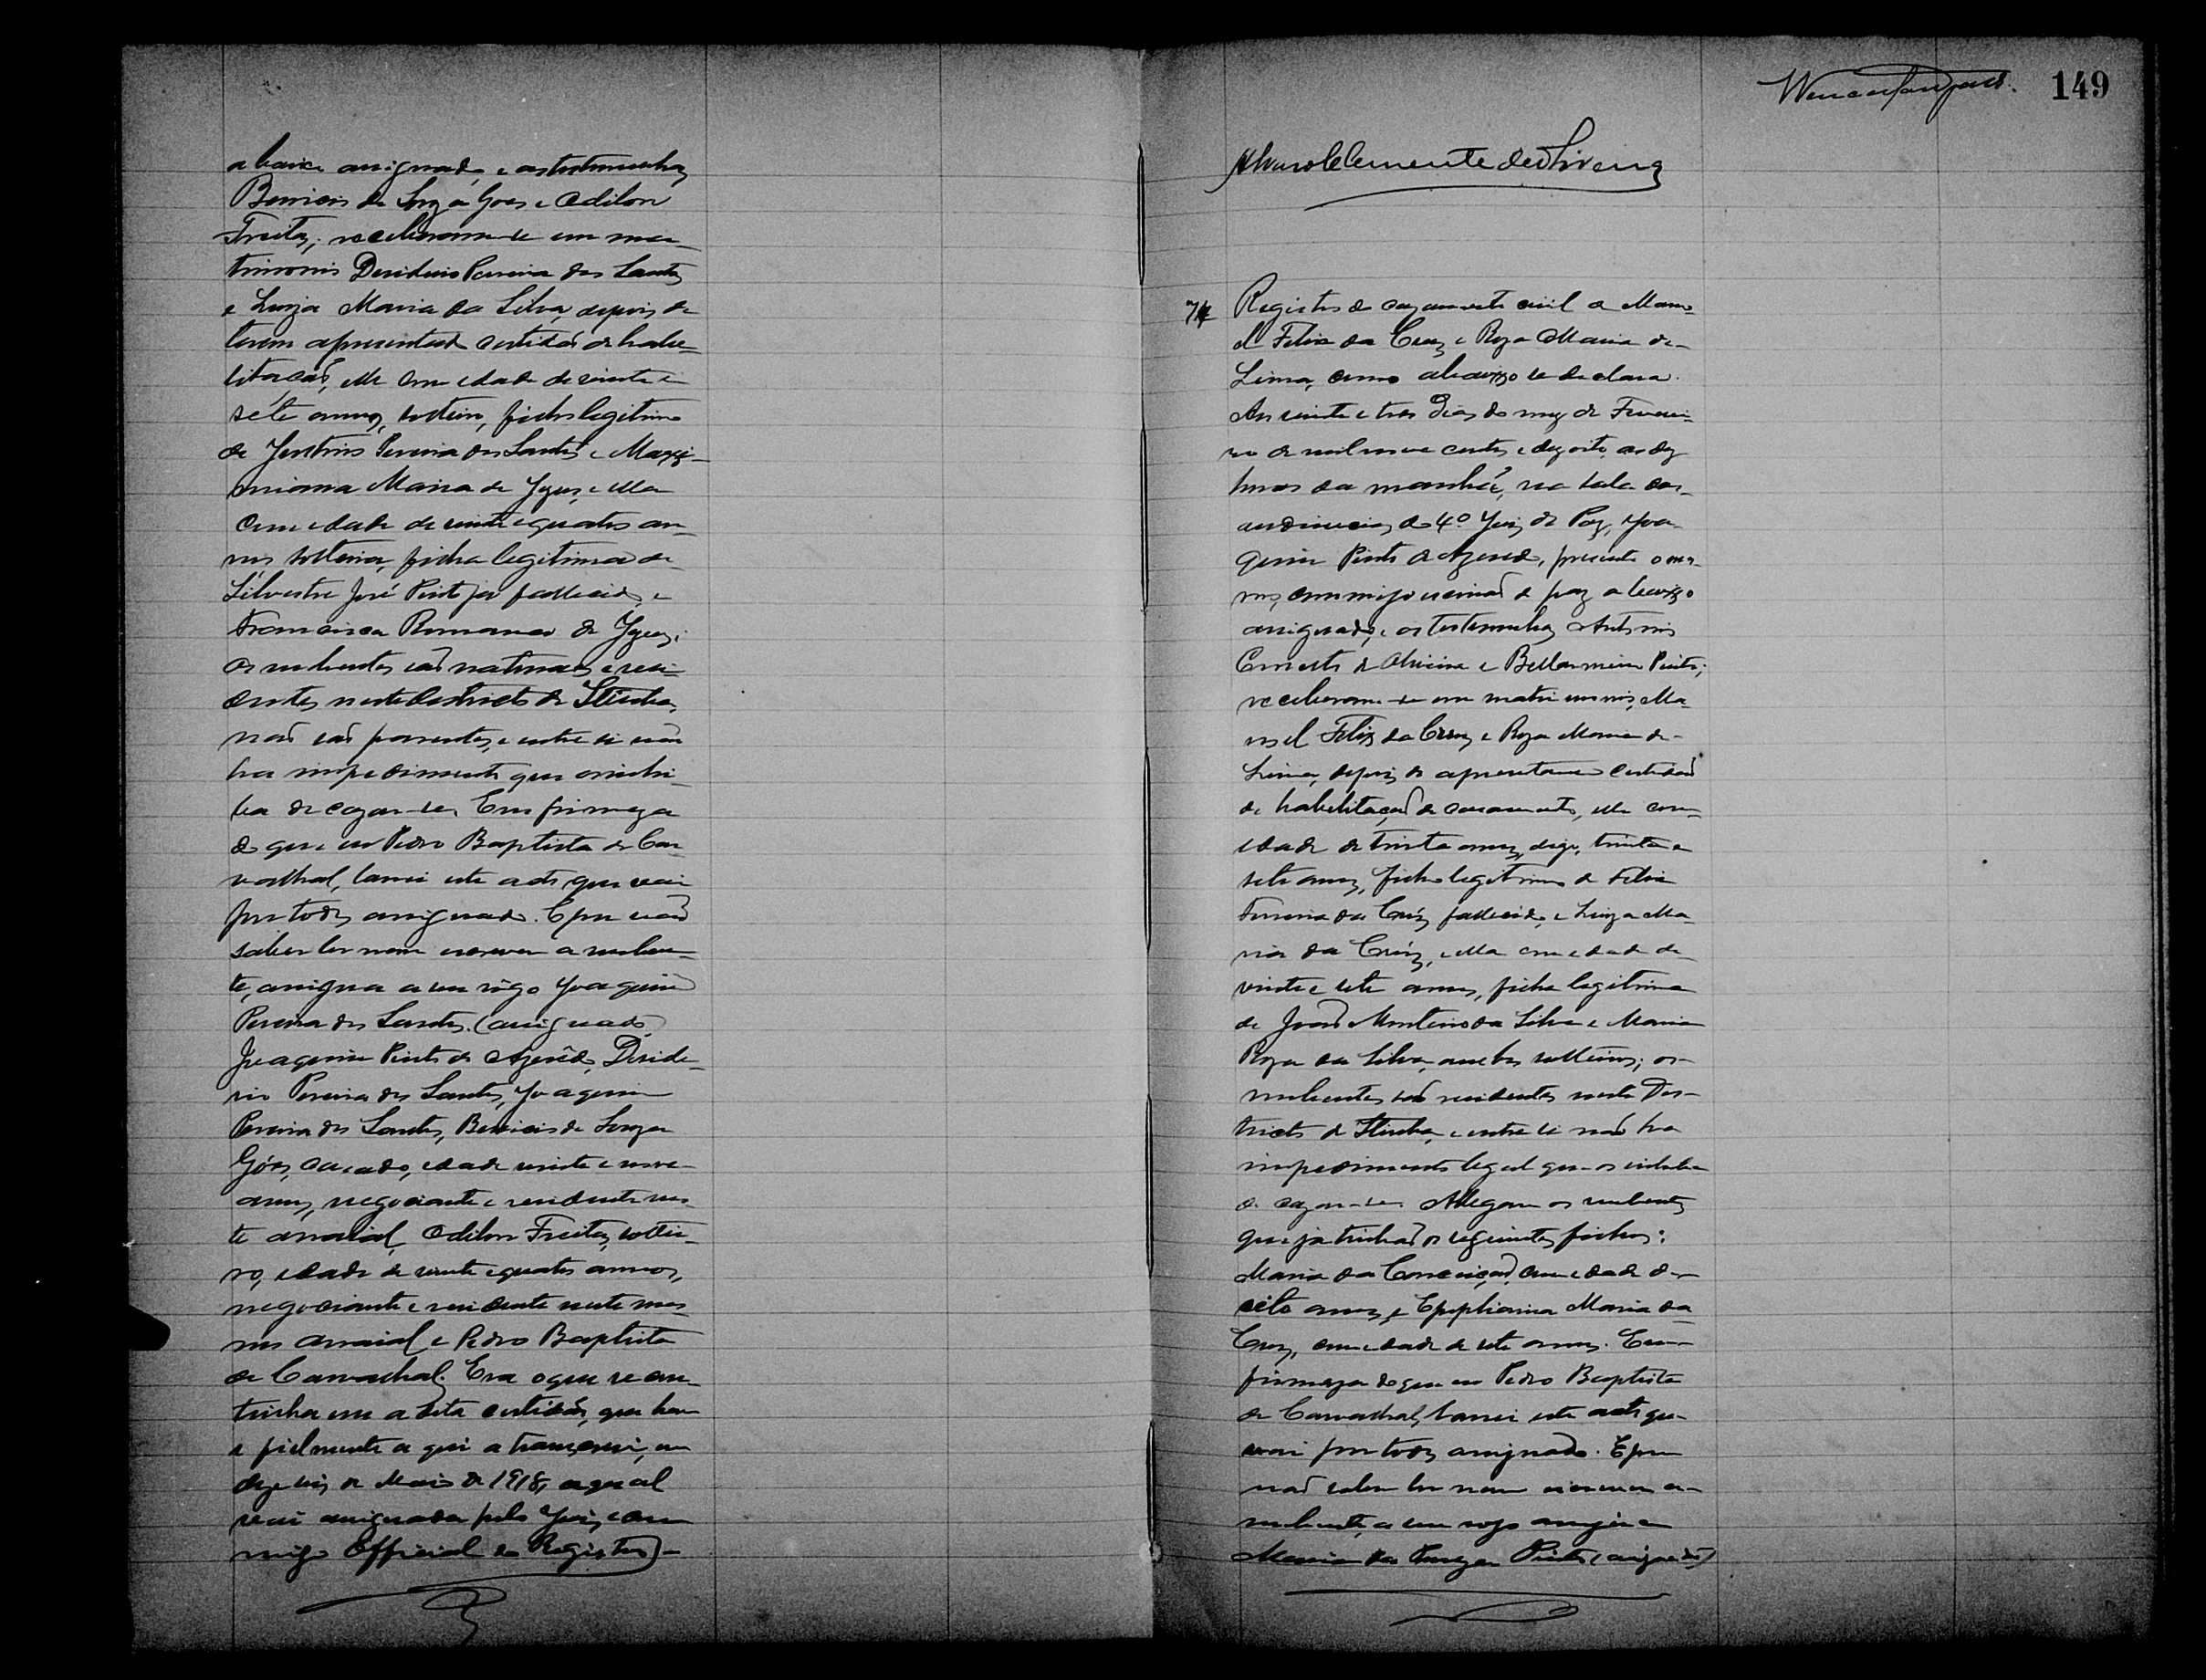 abaixo assignado, e as testemunhas
Benicio de Souza Goes e Odilon
Freitas; receberam-se em ma-
trimonio Desiderio Pereira dos Santos
e Luiza Maria da Silva, depois de
terem apresentado certidão de habe-
litação, elle com edade de vinte e
séte annos, solteiro, filho legitimo
de Justino Pereira dos Santos e Maxi-
miana Maria de Jezus, e ella
com edade de vinte e quatro an-
nos, solteira, filha legitima de
Silvestre José Pinto já fallecido, e
Francisca Romana de Jezus;
os nubentes são naturaes e resi-
dentes neste destricto de
não são parentes, e entre si não
ha impedimento que os inhi-
ba de cazar-se. Em firmeza
do que eu Pedro Baptista de Car-
valhal, lavrei este acto que vai
por todos assignado. E por não
saber ler nem escrever a nuben-
te, assigna a seu rôgo Joaquim
Pereira dos Santos. (assignados)
Joaquim Pinto de Azevêdo, Deside-
rio Pereira dos Santos, Joaquim
Pereira dos Santos, Benicio de Souza
Góes, casado, edade vinte e nove
annos, negociante e residente nes-
te arraial, Odilon Freitas, soltei-
ro, edade de vinte e quatro annos,
negociante e residente neste mes-
mo arraial e Pedro Baptista
de Carvalhal. Era o que se con-
tinha em a dita certidão, que bem
e fielmente aqui a transcrevi, em
dezeseis de Maio de 1918, a qual
vai assignada pelo Juiz, com-
migo Official do Registro.
149
Alvaro Clemente de Oliveira
74 Registro do cazamento civil de Mano-
el Felix da Cruz e Roza Maria de
Lima, como abaixo se declara.
Aos vinte e tres dias do mez de Feverei-
ro de mil nove centos e dezoito, as dez
horas da manhã, na sala das
audiencias do 4º Juiz de Paz, Joa-
quim Pinto de Azevedo, presente o mes-
mo, commigo escrivão de paz abaixo
assignado, e as testemunhas Antonio
Ernesto de Oliveira e Bellarmino Pinto;
receberam-se em matrimonio, Ma-
noel Felix da Cruz e Roza Maria de
Lima, depois de apresentarem certidão
de habelitação de casamento, elle com
edade de trinta annos, digo, trinta e
sete annos, filho legitimo de Felix
Ferreira da Crúz, fallecido, e Luiza Ma-
ria da Crúz, e ella com edade de
vinte e sete annos, filha legitima
de João Monteiro da Silva e Maria
Roza da Silva, ambos solteiros; os
nubentes são residentes neste Des-
tricto de e entre si não ha
impedimento legal que os inhiba
de cazar-se. Allegam os nubentes
que já tinhão os seguintes filhos:
Maria da Conceição, com edade de
oito annos, e Epiphania Maria da
Cruz, com edade de sete annos. Em
firmeza do que eu Pedro Baptista
de Carvalhal, lavrei este acto que
vai por todos assignado. E por
não saber ler nem escrever a
nubente, a seu rogo assigna
Maria da Pinto (assignados)